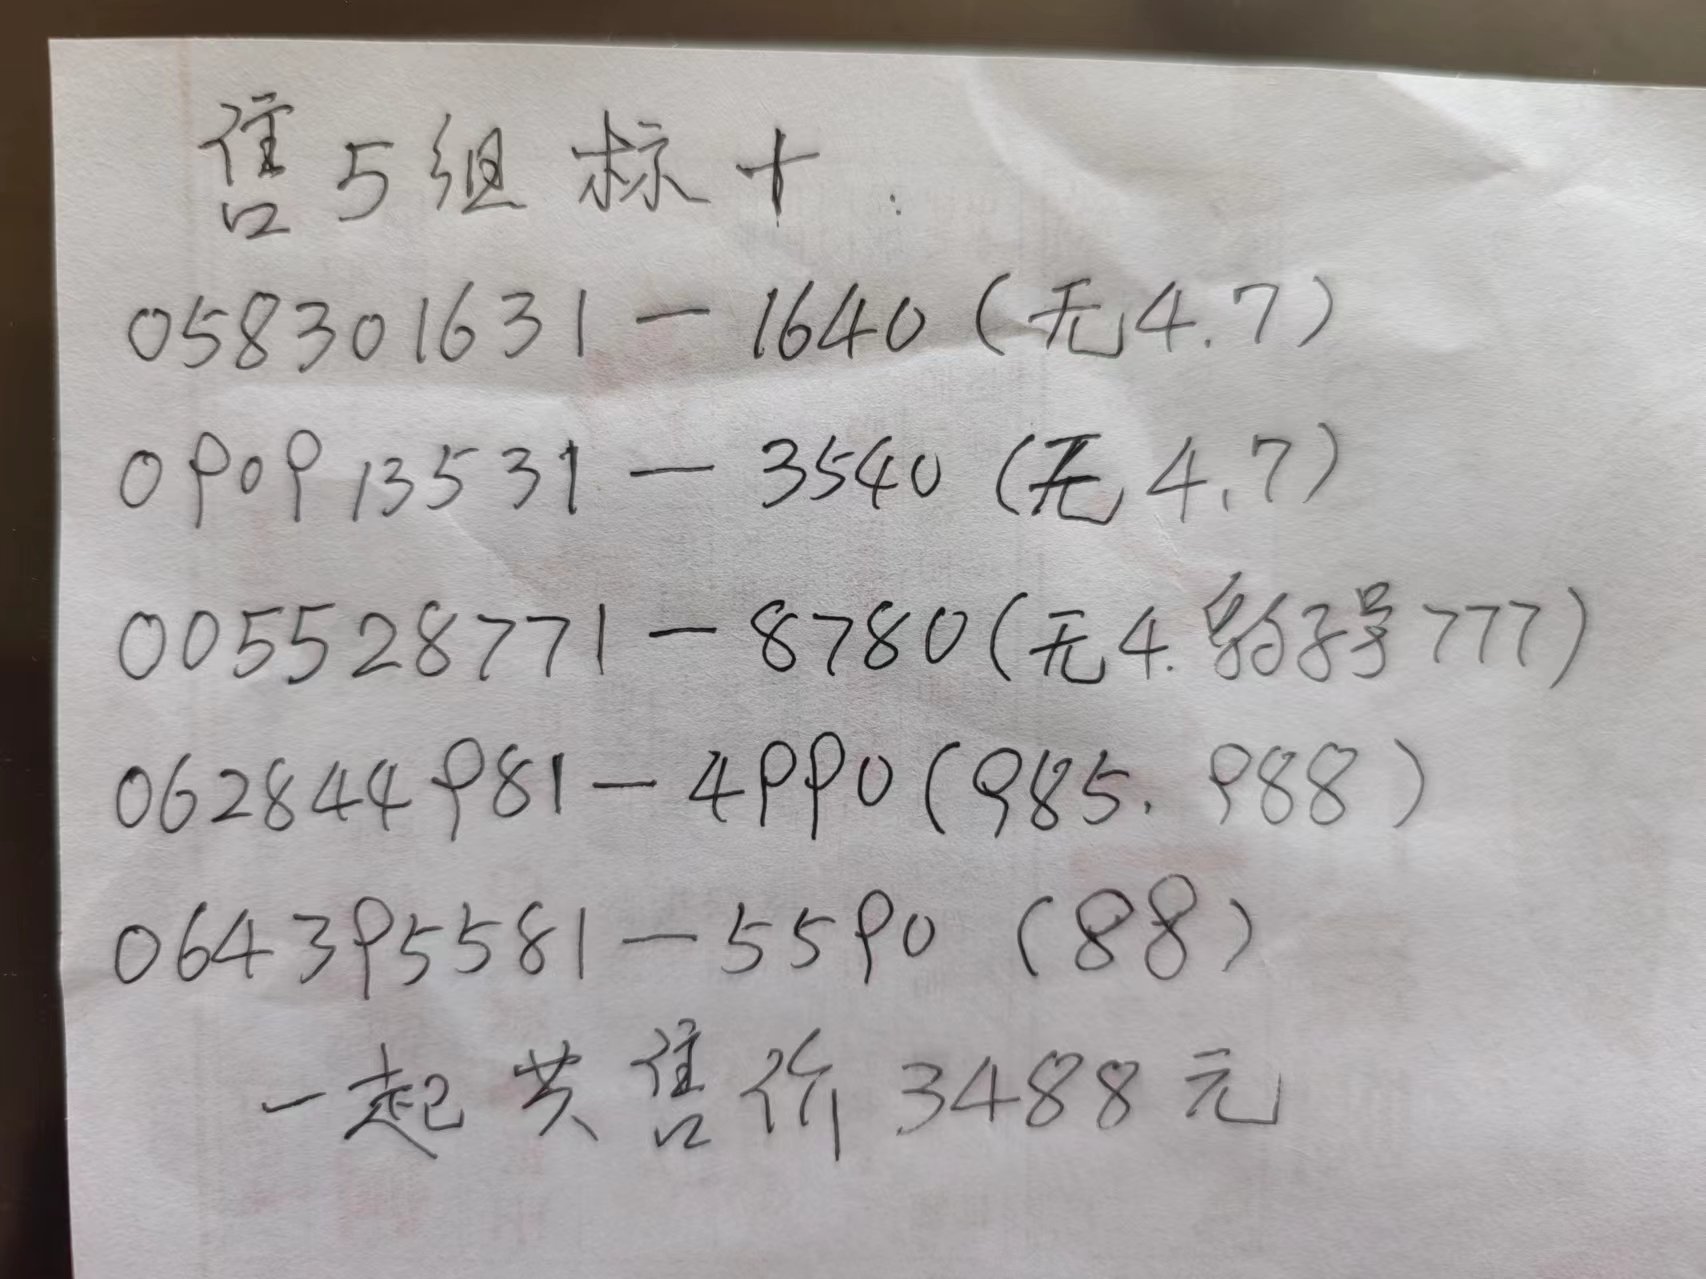 售5组标十
058301631-1640(无4.7)
090913531-3540(无4.7)
005528771-8780(无4.豹子号777)
062844981-4990(985.988)
064395581-5590(88)
一起共售价3488元